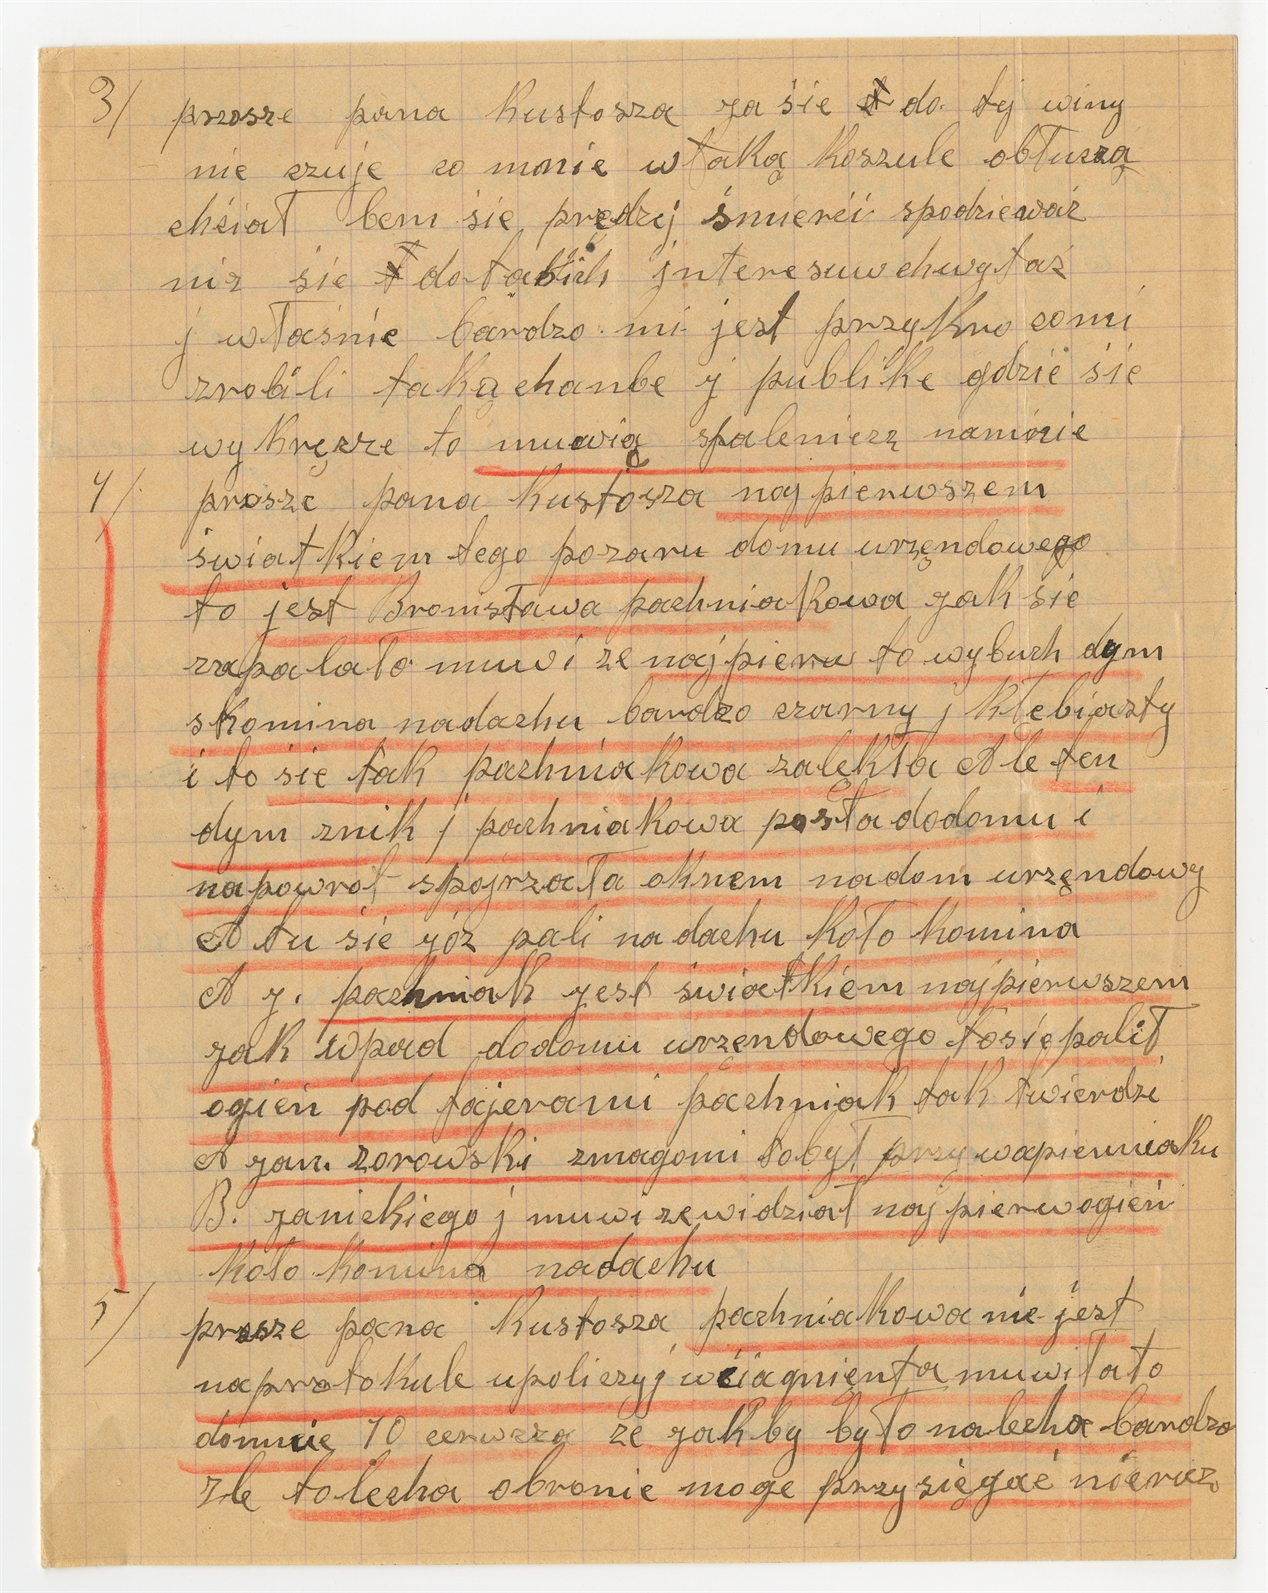 3/ prosze pana Kustosza ja sie do tej winy
nie czuje co mnie w taką Koszule obtuczą
chćiał bem sie prędzej śmierći spodziewać
niz sie do takich jnteresuw chwytać
j właśnie bardzo mi jest przykro co mi
zrobili taką chanbe j publike gdzie sie
wykręcze to muwią spalenicza namnie
4/ prosze pana kustosza najpierwszem
światkiem tego pozaru domu urzęndowego
to jest Bronisława pachniakowa jak sie
zapalało muwi ze najpierw to wybuch dym
skomina nadachu bardzo czarny j kłebiasty
i to sie tak pachniakowa zalękła A le ten
dym znik j pachniakowa posła dodomu i
napowrot spojrzała oknem nadom urzęndowy
A tu sie józ pali na dachu koło komina
A j. pachniak jest światkiem najpierwszem
jak wpad dodomu urzęndowego to się palił
ogień pod fajerami pachniak tak twierdzi
A jan. zorowski zmagomi to był przy wapienniaku
B. janickiego j muwi ze widział najpierw ogień
koło komina nadachu
5/ prosze pana Kustosza pachniakowa nie jest
naprotokule upoliczyj wćiągnięnta muwiła to
domnie 10 cerwcza ze jakby było nalecha bardzo
zle tolecha obronie moge przysięgać nieraz